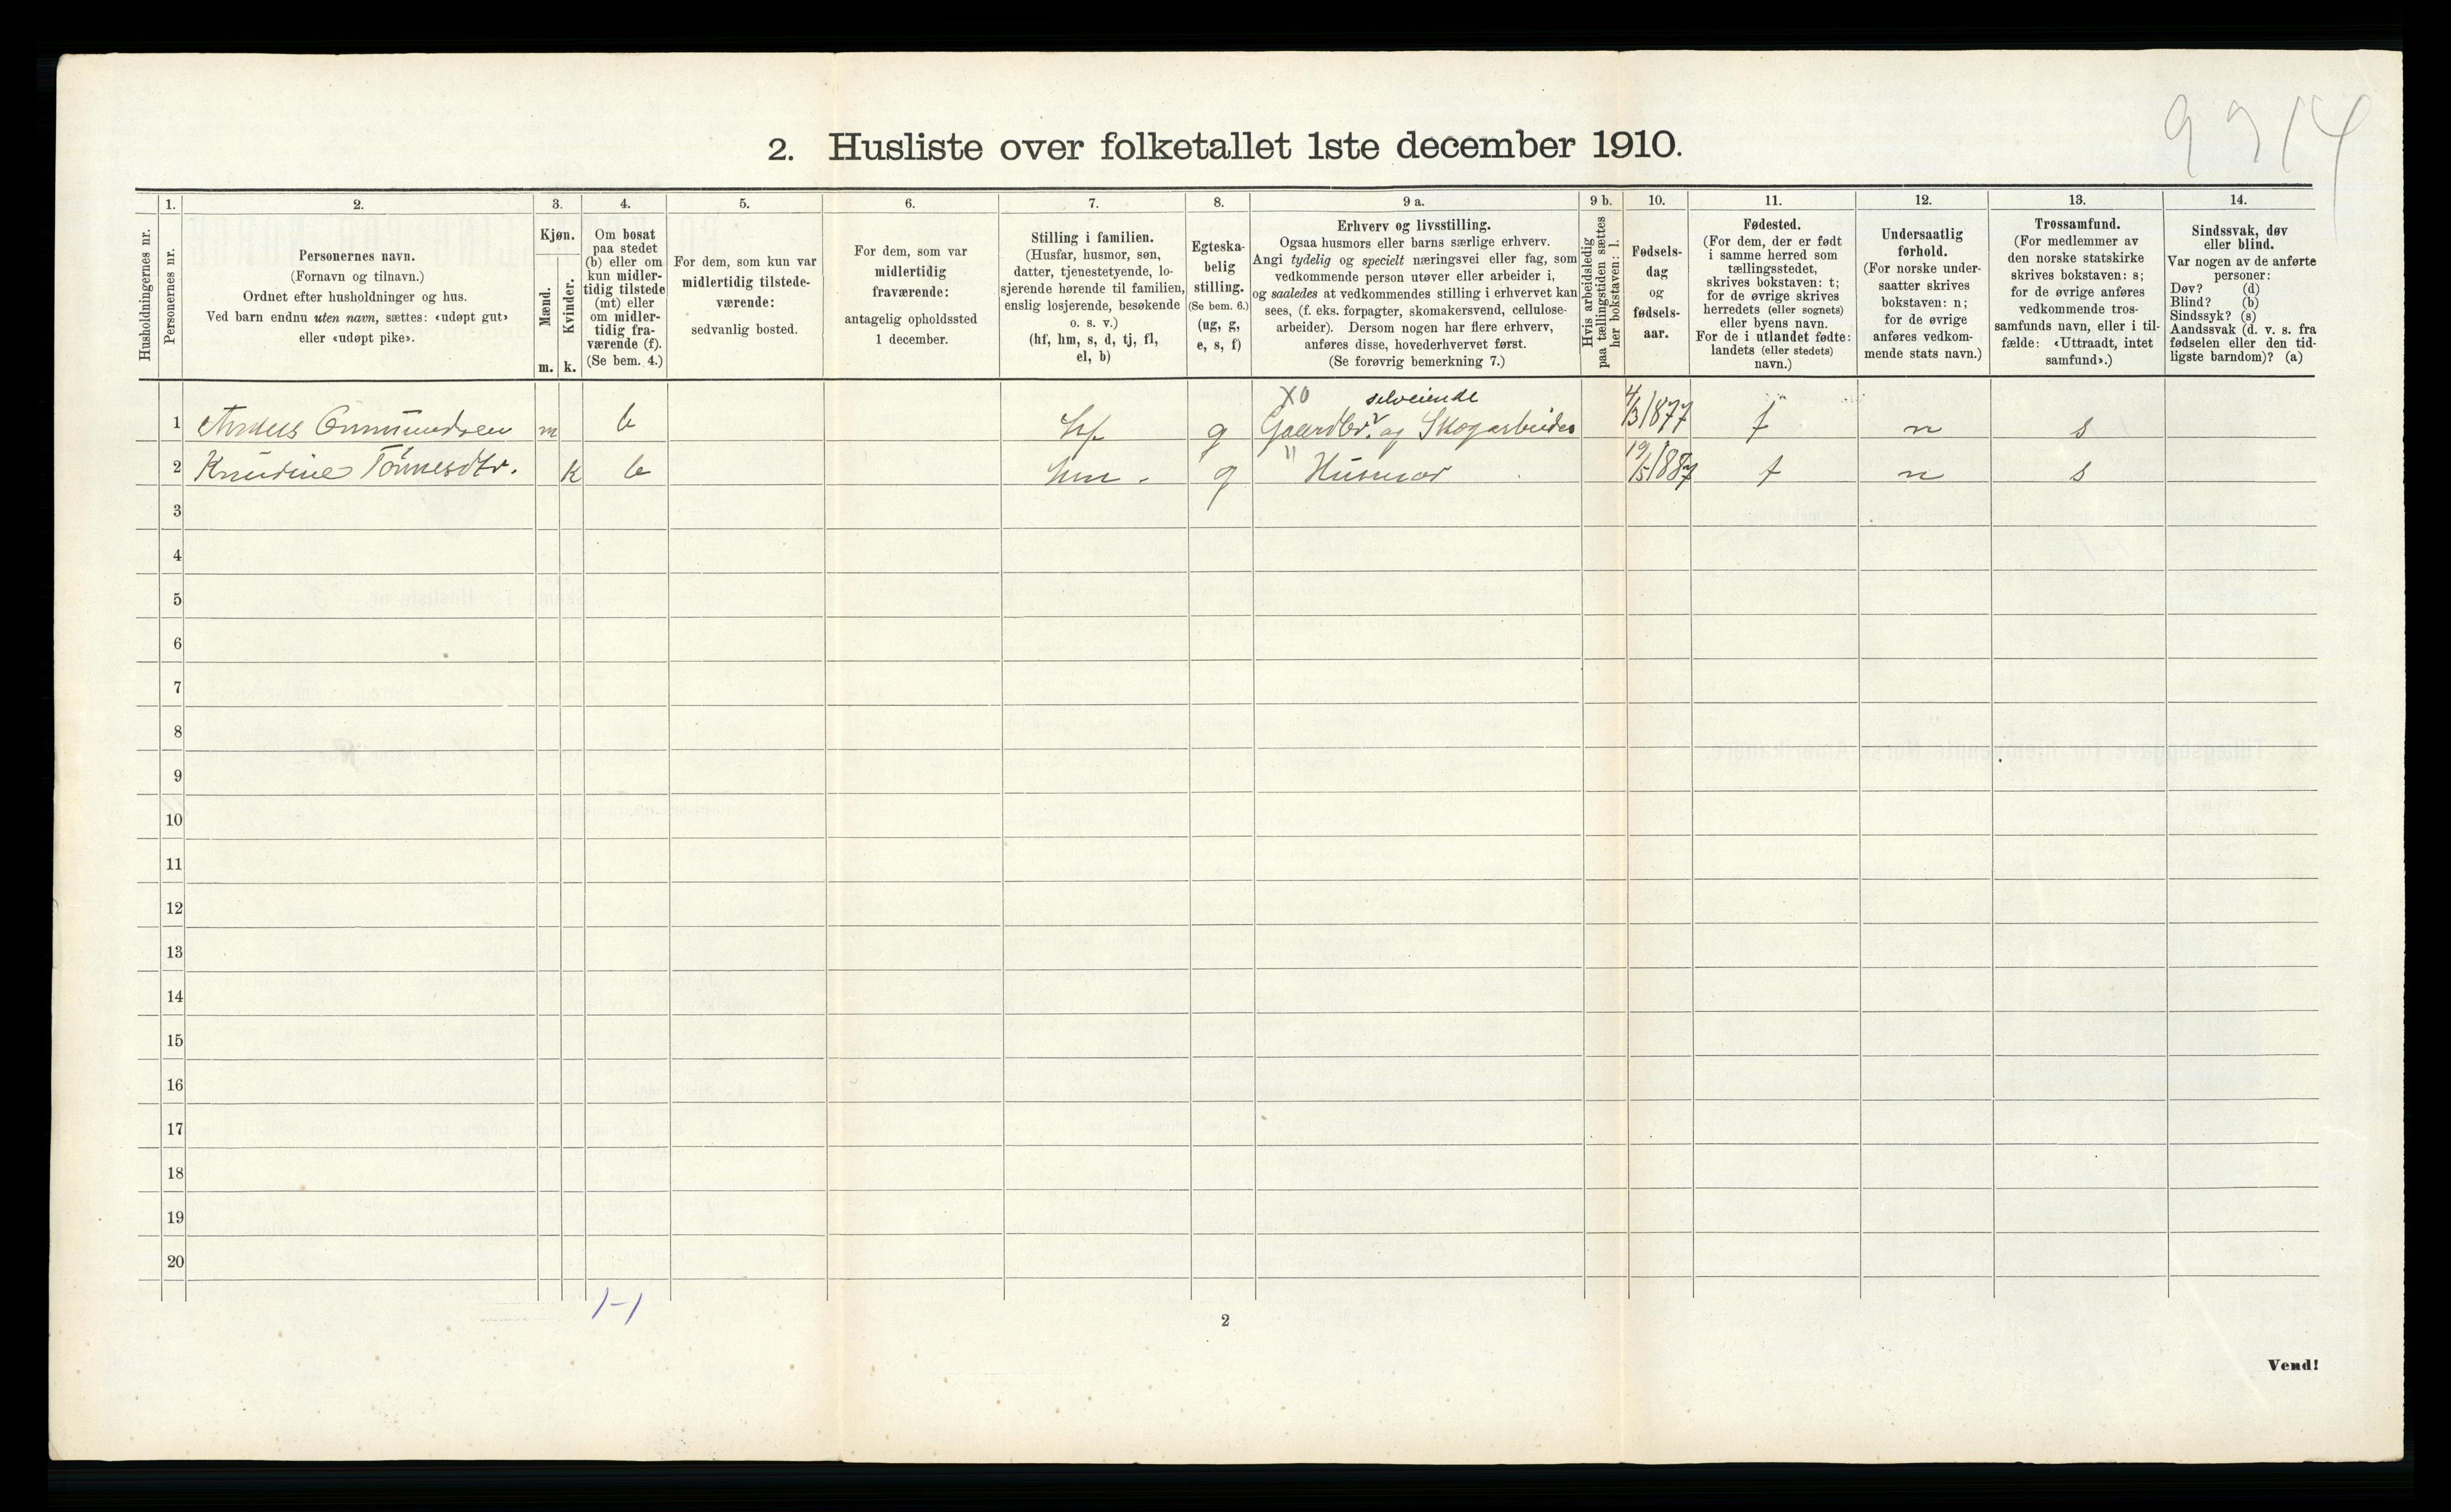 9914
2. Husliste over folketallet 1ste december 1910.
Husholdningernes nr.
1.
Personernes nr.
2.
Personernes navn.
(Fornavn og tilnavn.)
Ordnet efter husholdninger og hus.
Ved barn endnu uten navn, sættes: «udøpt gut»
eller «udøpt pike».
3.
Kjøn.
Mænd.
Kvinder.
m. k.
4.
Om bosat
paa stedet
(b) eller om
kun midler-
tidig tilstede
(mt) eller
om midler-
tidig fra-
værende (f).
(Se bem. 4.)
5.
For dem, som kun var
midlertidig tilstede-
værende:
sedvanlig bosted.
6.
For dem, som var
midlertidig
fraværende:
antagelig opholdssted
1 december.
7.
Stilling i familien.
(Husfar, husmor, søn,
datter, tjenestetyende, lo-
sjerende hørende til familien,
enslig losjerende, besøkende
o. s. v.)
(hf, hm, s, d, tj, fl,
el, b)
8.
Egteska-
belig
stilling.
(Se bem. 6.)
(ug, g,
e, s, f)
9 a.
Erhverv og livsstilling.
Ogsaa husmors eller barns særlige erhverv.
Angi tydelig og specielt næringsvei eller fag, som
vedkommende person utøver eller arbeider i,
og saaledes at vedkommendes stilling i erhvervet kan
sees, (f. eks. forpagter, skomakersvend, cellulose-
arbeider). Dersom nogen har flere erhverv,
anføres disse, hovederhvervet først.
(Se forøvrig bemerkning 7.)
9 b.
Hvis arbeidsledig
paa tællingstiden sættes
her bokstaven: l.
10.
Fødsels-
dag
og
fødsels-
aar.
11.
Fødested.
(For dem, der er født
i samme herred som
tællingsstedet,
skrives bokstaven: t;
for de øvrige skrives
herredets (eller sognets)
eller byens navn.
For de i utlandet fødte:
landets (eller stedets)
navn.)
12.
Undersaatlig
forhold.
(For norske under-
saatter skrives
bokstaven: n;
for de øvrige
anføres vedkom-
mende stats navn.)
13.
Trossamfund.
(For medlemmer av
den norske statskirke
skrives bokstaven: s;
for de øvrige anføres
vedkommende tros-
samfunds navn, eller i til-
fælde: «Uttraadt, intet
samfund».)
14.
Sindssvak, døv
eller blind.
Var nogen av de anførte
personer:
Døv? (d)
Blind? (b)
Sindssyk? (s)
Aandssvak (d. v. s. fra
fødselen eller den tid-
ligste barndom)? (a)
X0 selveiende
1 Anders Gunmundsen m b hf g Gaardbr. og Skogarbeider 4/3 1877 t n s
2 Knudine Tönnesdtr. k b hm. g " Husmor 19/5 1887 t n s
3
4
5
6
7
8
9
10
11
12
13
14
15
16
17
18
19
20
1-1
2
Vend!